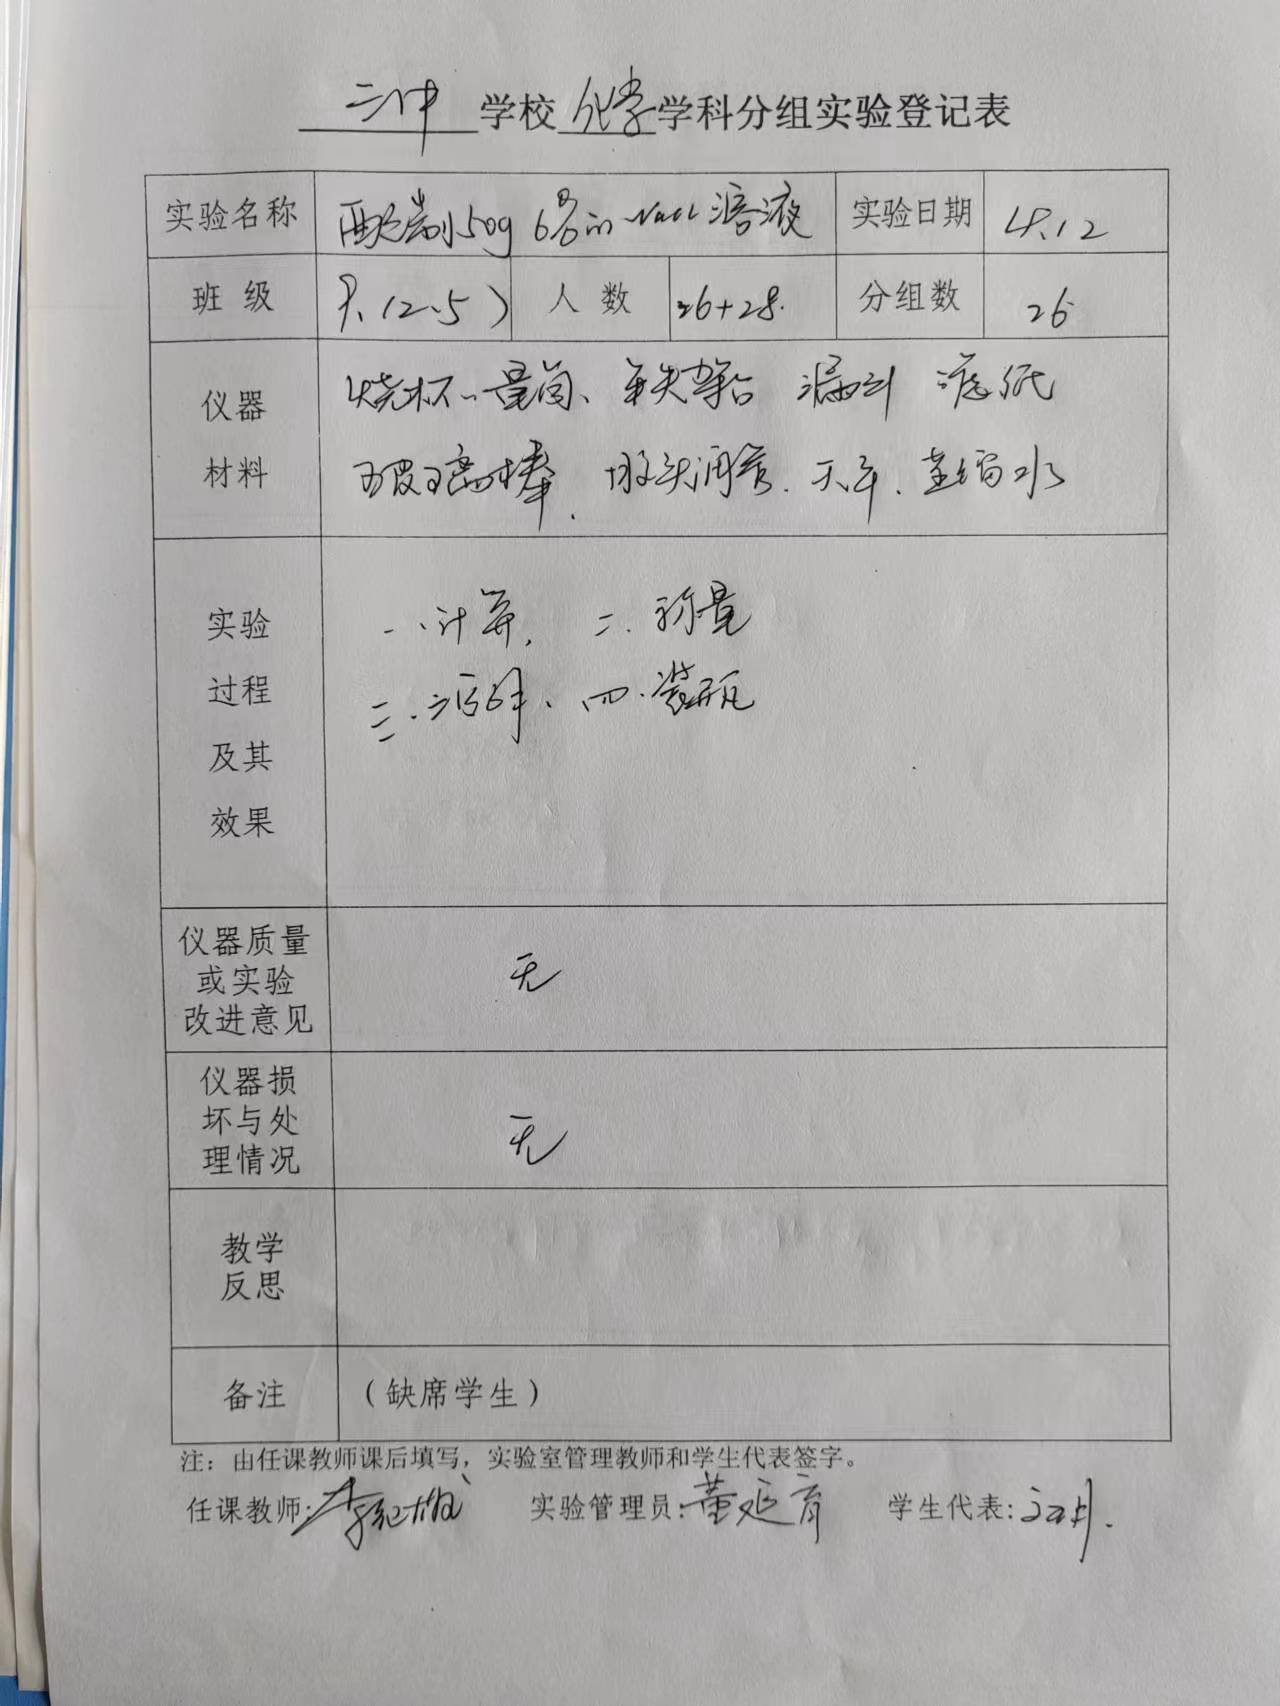 二中 学校 化学 学科分组实验登记表
实验名称 配制50g 6%的NaCl溶液 实验日期 4.12
班 级 九(2.5) 人 数 26+28 分组数 26
仪器材料 烧杯、量筒、铁架台 漏斗 滤纸
玻璃棒、胶头滴管、天平、蒸馏水
实验过程及其效果 一、计算, 二、称量
三、溶解、四、装瓶
仪器质量或实验改进意见 无
仪器损坏与处理情况 无
教学反思
备注 (缺席学生)
注:由任课教师课后填写,实验室管理教师和学生代表签字。
任课教师: 实验管理员:董延育 学生代表: